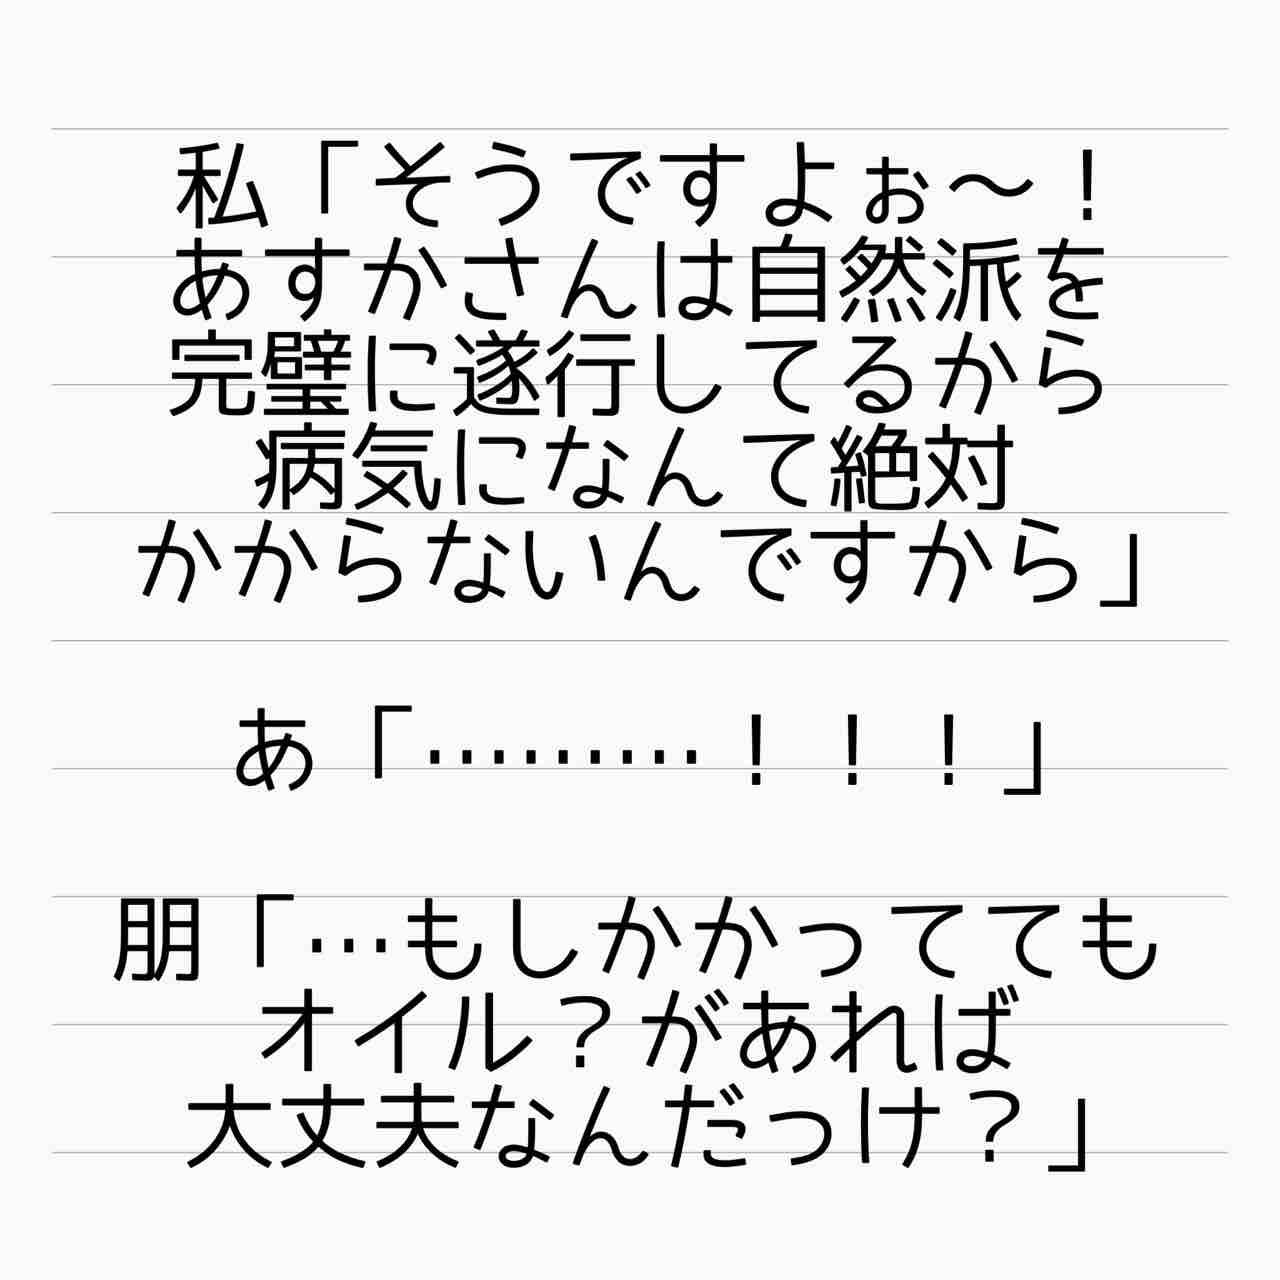 私「そうですよぉ〜！
あすかさんは自然派を
完璧に遂行してるから
病気になんて絶対
かからないんですから」
あ「………！！！」
朋「…もしかかってても
オイル？があれば
大丈夫なんだっけ？」